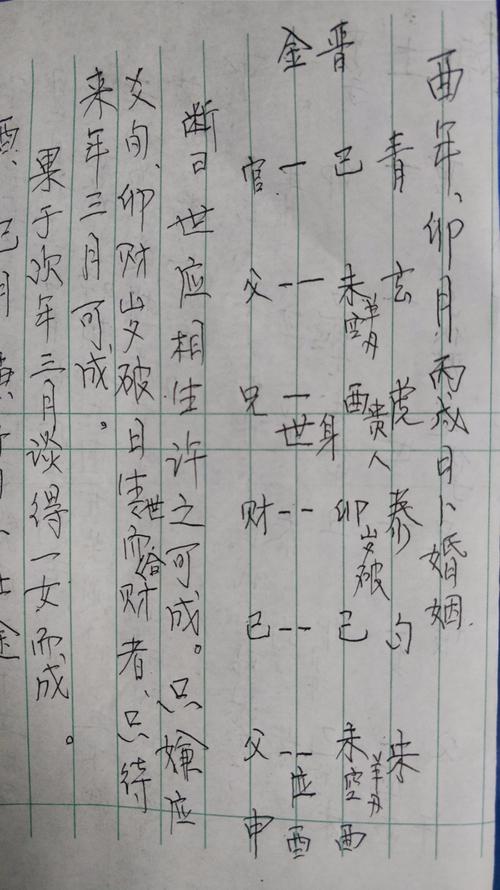 酉年、卯月丙戌日卜婚姻.
青 玄 虎 勾 朱
晋 己 未空羊刃 酉贵人 卯岁破 己 未空羊刃 酉
金 世身 应 酉
官 父 兄 财 己 父 申
断曰世应相生许之可成。只嫌应
爻旬、卯财岁破日生世而合财者、只待
来年三月可成。
果于次年三月谈得一女而成。